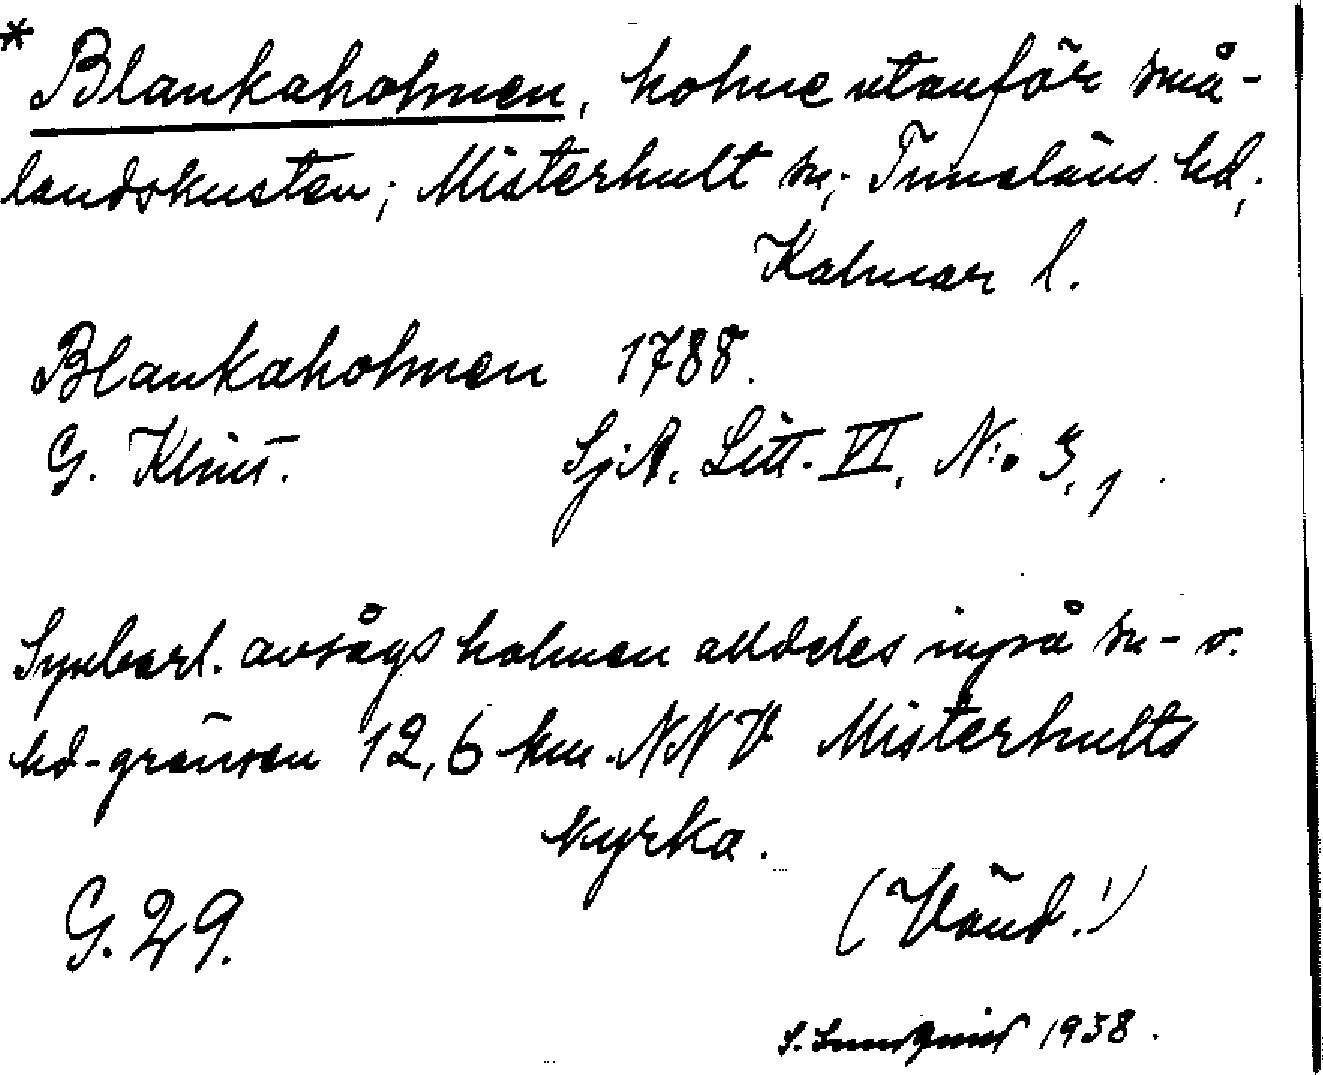 * Blankaholmen, holme utanför små-
landskusten; Misterhult sn; Tunaläns hd,
Kalmar l.
Blankaholmen 1788.
G. Klint. SjA. Litt. VI, N:o 3, 1.
Synbarl. avsågs holmen alldeles inpå sn- o.
hd-gränsen 12,6 km NNV Misterhults
kyrka.
G. 29. (Vänd!)
1938.